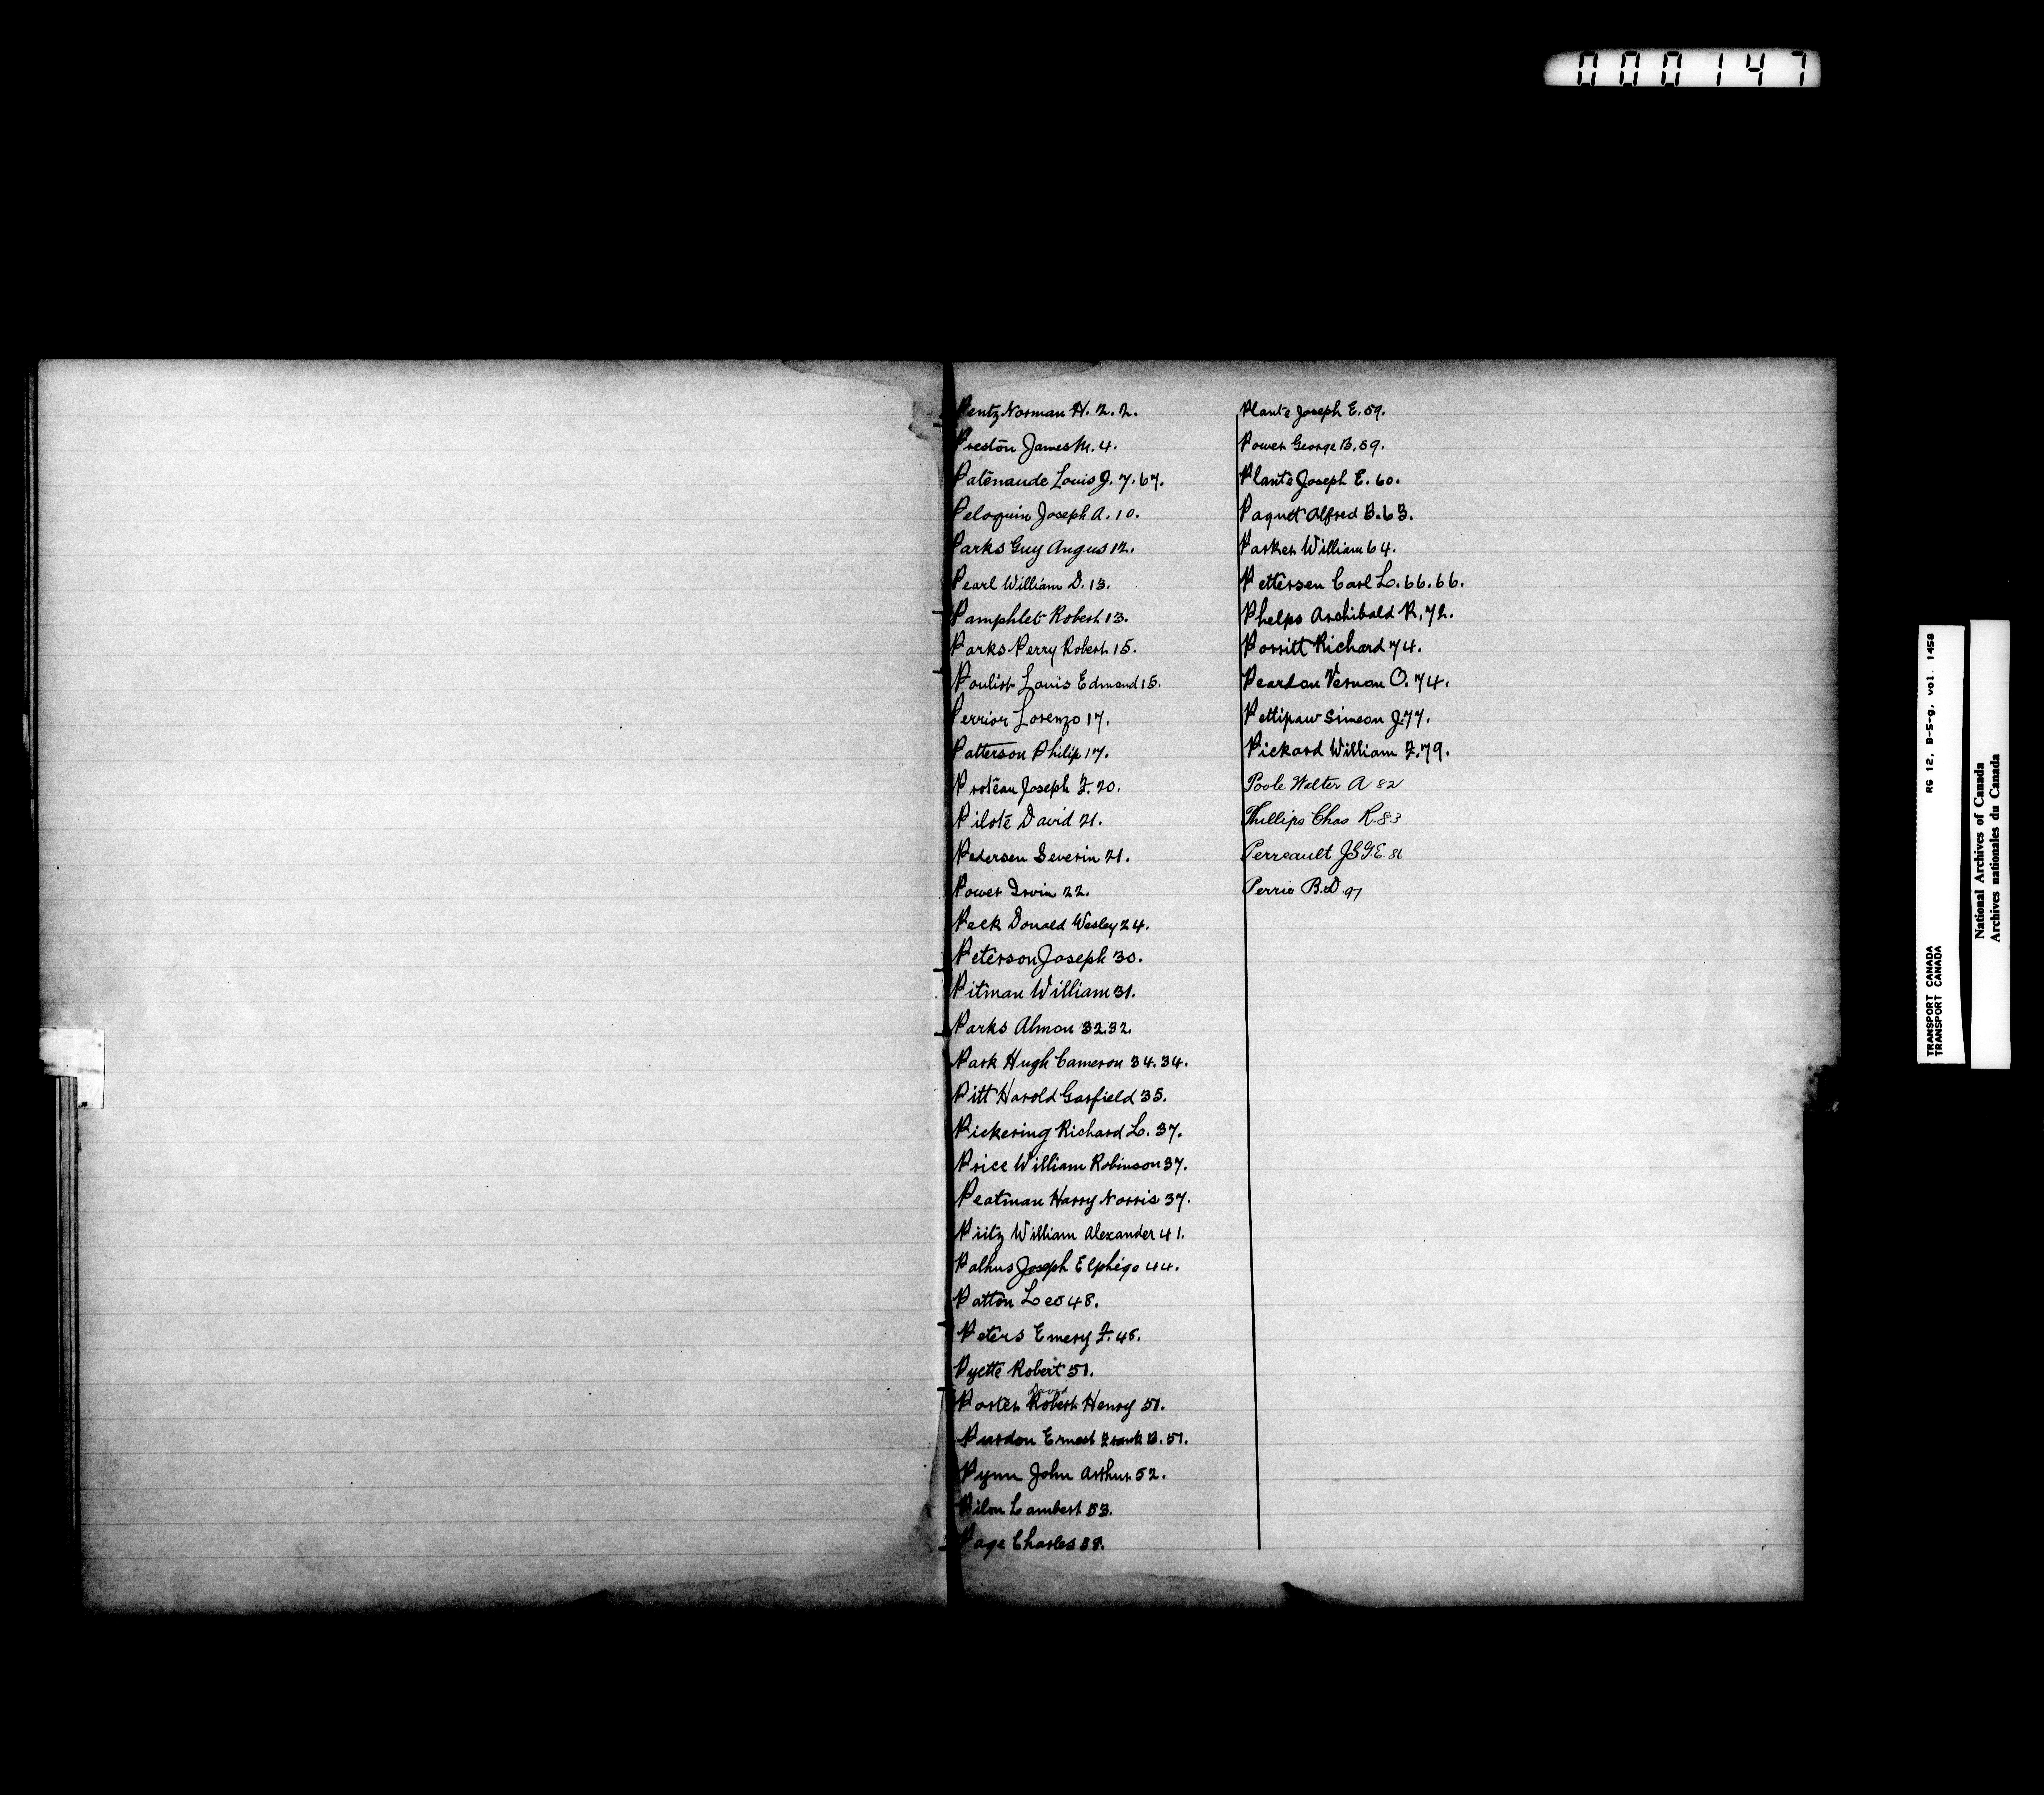 000147
Pentz Norman H. 2. 2.
Preston James M. 4.
Patenaude Louis J. 7. 67.
Peloquin Joseph A. 10.
Parks Guy Angus 12.
Pearl William D. 13.
Pamphlet Robert 13.
Parks Perry Robert 15.
Poulist Louis Edmond 15.
Perrior Lorenzo 17.
Patterson Philip 17.
Proteau Joseph F. 20.
Pilote David 21.
Pedersen Severin 21.
Power Irvin 22.
Peck Donald Wesley 24.
Peterson Joseph 30.
Pitman William 31.
Parks Almon 32.32.
Park Hugh Cameron 34.34.
Pitt Harold Garfield 35.
Pickering Richard L. 37.
Price William Robinson 37.
Peatman Harry Norris 37.
William Alexander 41.
Joseph Elphége 44.
Patton Leo 48.
Peters Emery F. 48.
Pyette Robert 51.
David
Porter Robert Henry 51.
Purdon Ernest Frank B. 51.
Pynn John Arthur 52.
Pilon Lambert 53.
Page Charles 58.
Plante Joseph E. 59.
Power George B. 59.
Plante Joseph E. 60.
Paquet Alfred B. 63.
Parker William 64.
Pettersen Carl L. 66. 66.
Phelps Archibald R. 72.
Porritt Richard 74.
Peardon Vernon O. 74.
Pettipaw Simeon J. 77.
Pickard William F. 79.
Poole Walter A 82
Phillips Chas R. 83
Perreault J.S.G.E. 86
Perrie B.D. 97
RG 12, B-5-g, vol. 1458
TRANSPORT CANADA
TRANSPORT CANADA
National Archives of Canada
Archives nationales du Canada